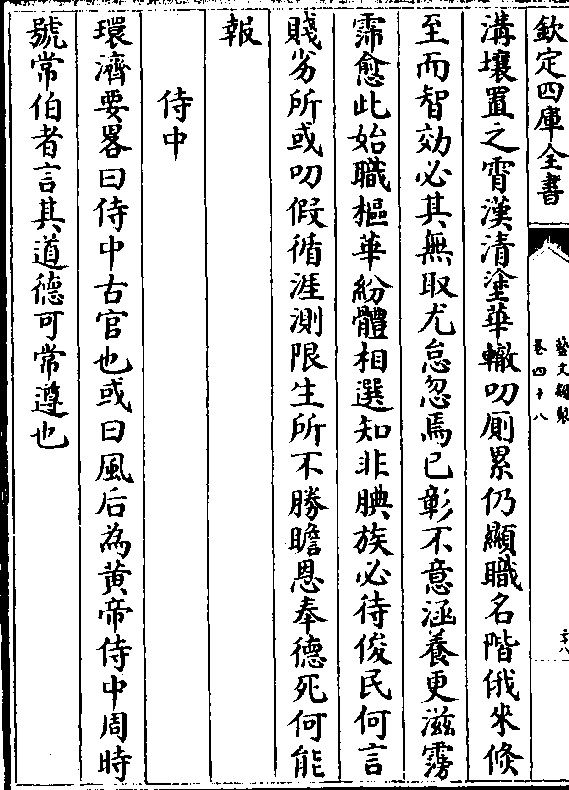 欽定四庫全書
藝文類聚
卷四十八
溝壤置之霄漢清塗華轍叨厠累仍顯職名階俄來倐
至而智効必其無取尤怠忽焉已彰不意涵養更滋霧
霈愈此始職樞華紛體相選知非腆族必待俊民何言
賤劣所或叨假循涯測限生所不勝瞻恩奉德死何能
報
侍中
環濟要畧曰侍中古官也或曰風后為黄帝侍中周時
號常伯者言其道德可常遵也